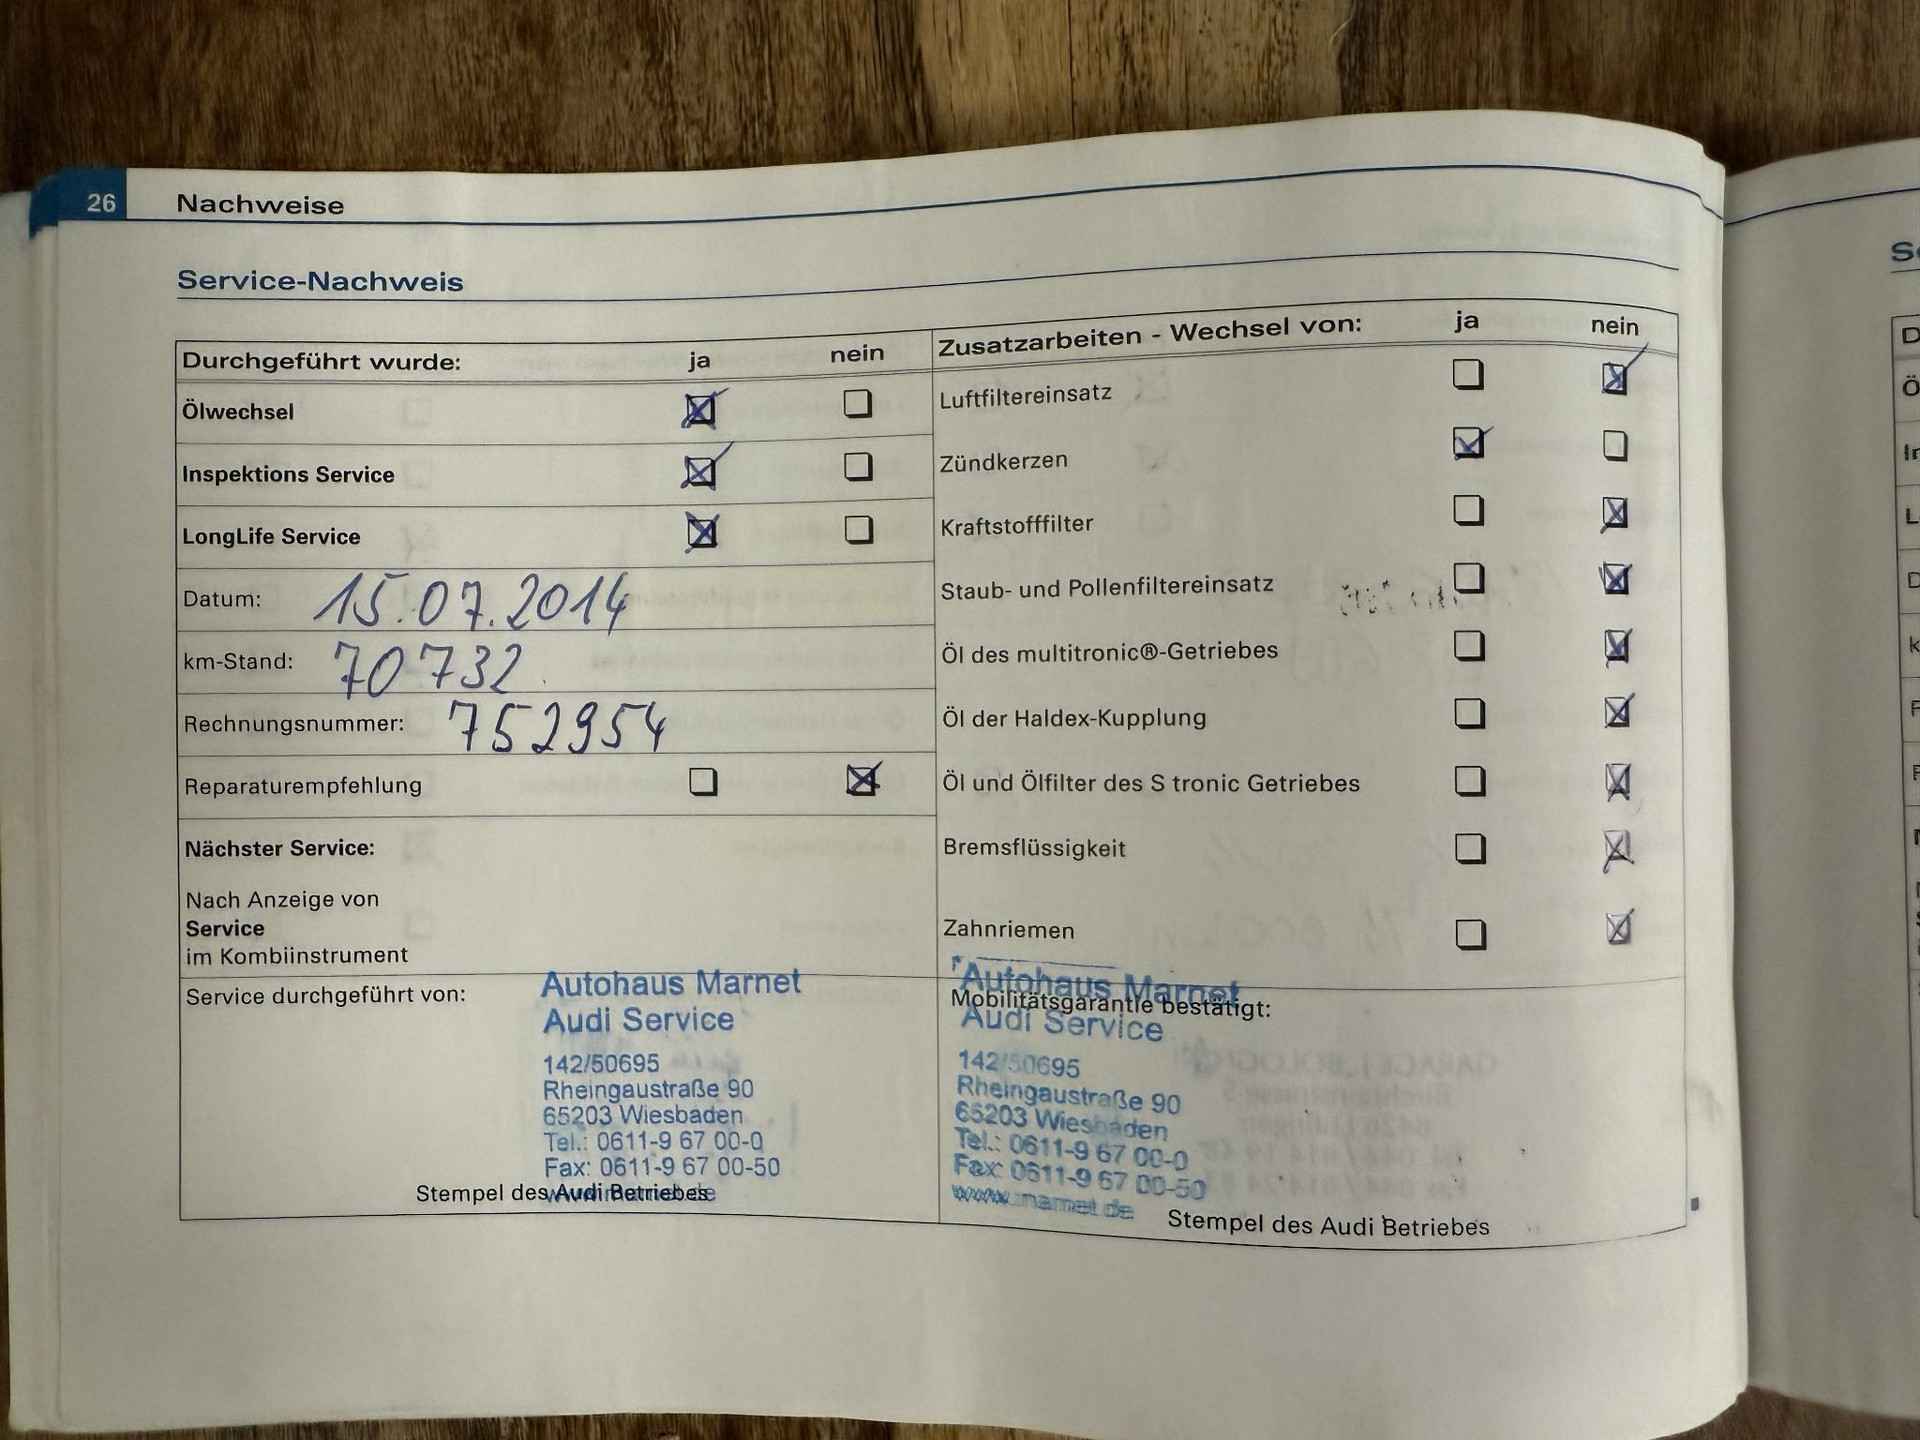 26 Nachweise
Service-Nachweis
Durchgeführt wurde: ja nein
Ölwechsel
Inspektions Service
LongLife Service
Datum: 15.07.2014
km-Stand: 70732
Rechnungsnummer: 752954
Reparaturempfehlung
Nächster Service:
Nach Anzeige von
Service
im Kombiinstrument
Service durchgeführt von:
Autohaus Marnet
Audi Service
142/50695
Rheingaustraße 90
65203 Wiesbaden
Tel.: 0611-9 67 00-0
Fax: 0611-9 67 00-50
www.marnet.de
Stempel des Audi Betriebes
Zusatzarbeiten - Wechsel von: ja nein
Luftfiltereinsatz
Zündkerzen
Kraftstofffilter
Staub- und Pollenfiltereinsatz
Öl des multitronic®-Getriebes
Öl der Haldex-Kupplung
Öl und Ölfilter des S tronic Getriebes
Bremsflüssigkeit
Zahnriemen
Mobilitätsgarantie bestätigt:
Autohaus Marnet
Audi Service
142/50695
Rheingaustraße 90
65203 Wiesbaden
Tel.: 0611-9 67 00-0
Fax: 0611-9 67 00-50
www.marnet.de
Stempel des Audi Betriebes